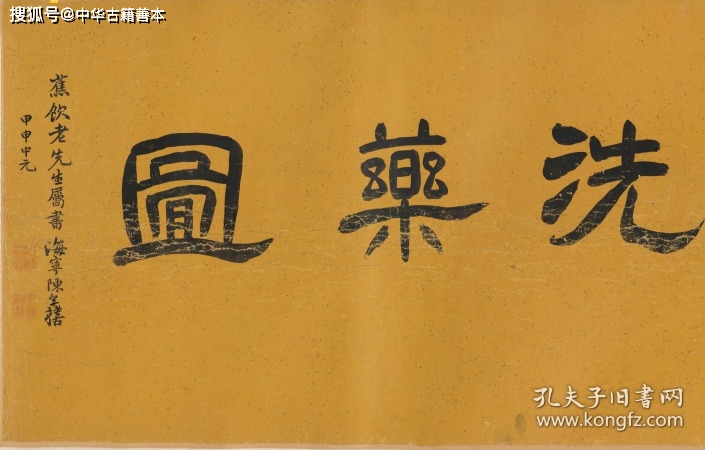 搜狐号@中华古籍善本
洗藥圖
蕉飲老先生屬書 海寧陳奕禧
甲申中元
孔夫子旧书网
www.kongfz.com